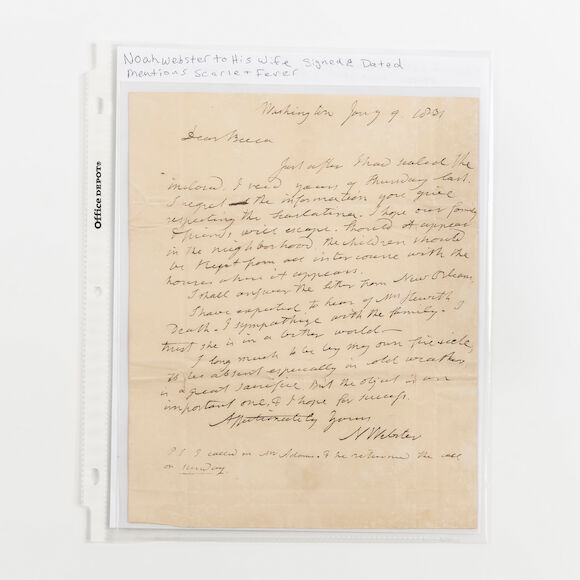 Noah Webster to His Wife Signed & Dated
Mentions Scarlet Fever
Office DEPOT®
Washington Jany 9. 1831
Dear Becca
Just after I had sealed the
inclosd, I recd yours of Thursday last.
I regret the information you give
respecting the Scarlatina. I hope our family
& friends will escape. Should it appear
in the neighborhood the children should
be kept from all intercourse with the
houses where it appears.
I shall answer the letter from New Orleans.
I have expected to hear of Mrs
Death. I sympathize with the family. I
trust she is in a better world.
I long much to be by my own fire side,
to be absent especially in cold weather
is a great sacrifice. But the object is an
important one, & I hope for success.
Affectionately Yours
N Webster
P.S. I called on Mr Adams. & he returned the call
on Sunday.